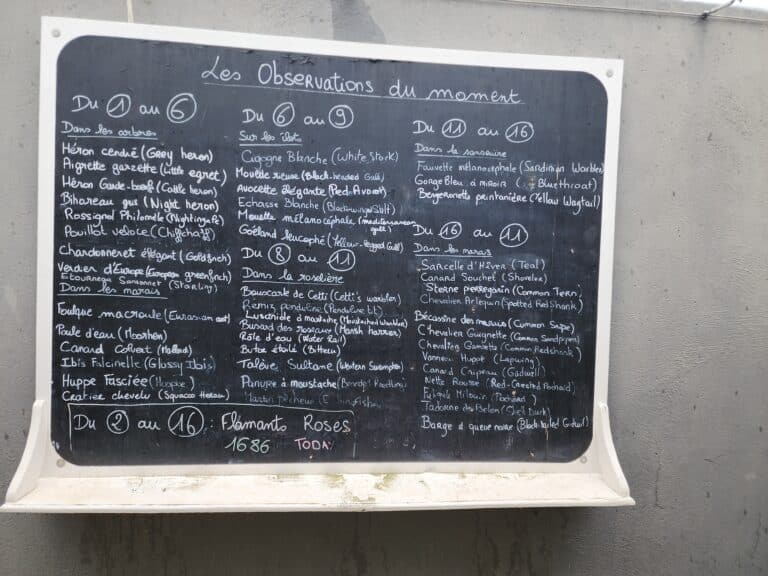 Les Observations du moment
Du 1 au 6
Dans les arbres
Héron cendré (Grey heron)
Aigrette garzette (Little egret)
Héron Garde-bœuf (Cattle heron)
Bihoreau gris (Night heron)
Rossignol Philomèle (Nightingale)
Pouillot veloce (Chiffchaff)
Chardonneret élégant (Goldfinch)
Verdier d'Europe (European greenfinch)
Etourneau Sansonnet (Starling)
Dans les marais
Foulque macroule (Eurasian coot)
Poule d'eau (Moorhen)
Canard Colvert (Mallard)
Ibis Falcinelle (Glossy Ibis)
Huppe Fasciée (Hoopoe)
Crabier chevelu (Squacco Heron)
Du 2 au 16 : Flamants Roses
1686 TODA
Du 6 au 9
Sur les îlots
Cigogne Blanche (White Stork)
Mouette rieuse (Black-headed Gull)
Avocette élégante (Pied Avocet)
Echasse Blanche (Blackwinged Stilt)
Mouette mélanocéphale (mediterranean gull)
Goéland leucophé (Yellow-legged Gull)
Du 8 au 11
Dans la roselière
Bouscarle de Cetti (Cetti's warbler)
Remiz penduline (Penduline tit)
Lusciniole à moustache (Moustached Warbler)
Busard des roseaux (Marsh harrier)
Râle d'eau (Water Rail)
Butor étoilé (Bittern)
Talève Sultane (Western Swamphen)
Panure à moustache (Bearded Reedling)
Martin Pêcheur (Kingfisher
Du 11 au 16
Dans la sansouire
Fauvette mélanocéphale (Sardinian Warbler)
Gorge Bleu à miroir ( Bluethroat)
Bergeronnette printanière (Yellow Wagtail)
Du 16 au 11
Dans les marais
Sarcelle d'Hiver (Teal)
Canard Souchet (Shoveler)
Sterne pierregarin (Common Tern)
Chevalier Arlequin (Spotted Redshank)
Bécassine des marais (Common Snipe)
Chevalier Guignette (Common Sandpiper)
Chevalier Gambette (Common Redshank)
Vanneau Huppé (Lapwing)
Canard Chipeau (Gadwall)
Nette Rousse (Red-Crested Pochard)
Fuligule Milouin (Pochard)
Tadorne de Belon (Shel Duck)
Barge à queue noire (Black-tailed Godwit)